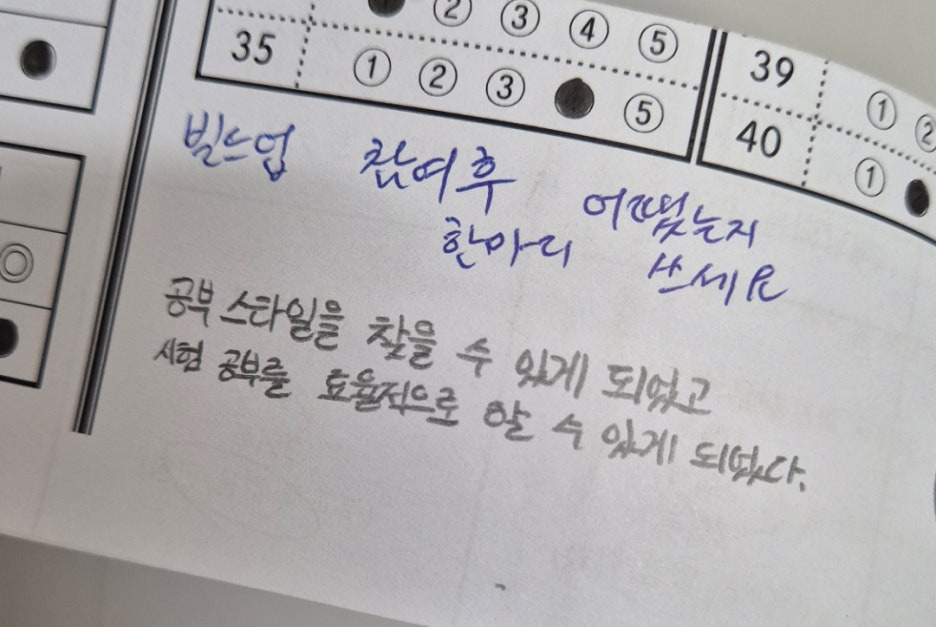 ② ③ ④ ⑤
35 ① ② ③ ⑤
39 ① ②
40 ①
빌드업 참여후 어땠는지
한마디 쓰세요
공부 스타일을 찾을 수 있게 되었고
시험 공부를 효율적으로 할 수 있게 되었다.